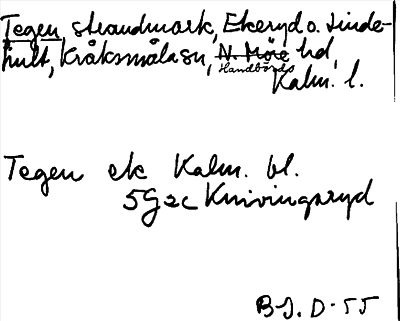 Tegen, strandmark, Ekeryd o. Linde-
hult, Kråksmåla sn, N. Möre hd,
Handbörds
Kalm. l.
Tegen ek Kalm. bl.
5G2c Knivingaryd
B-J. D-55